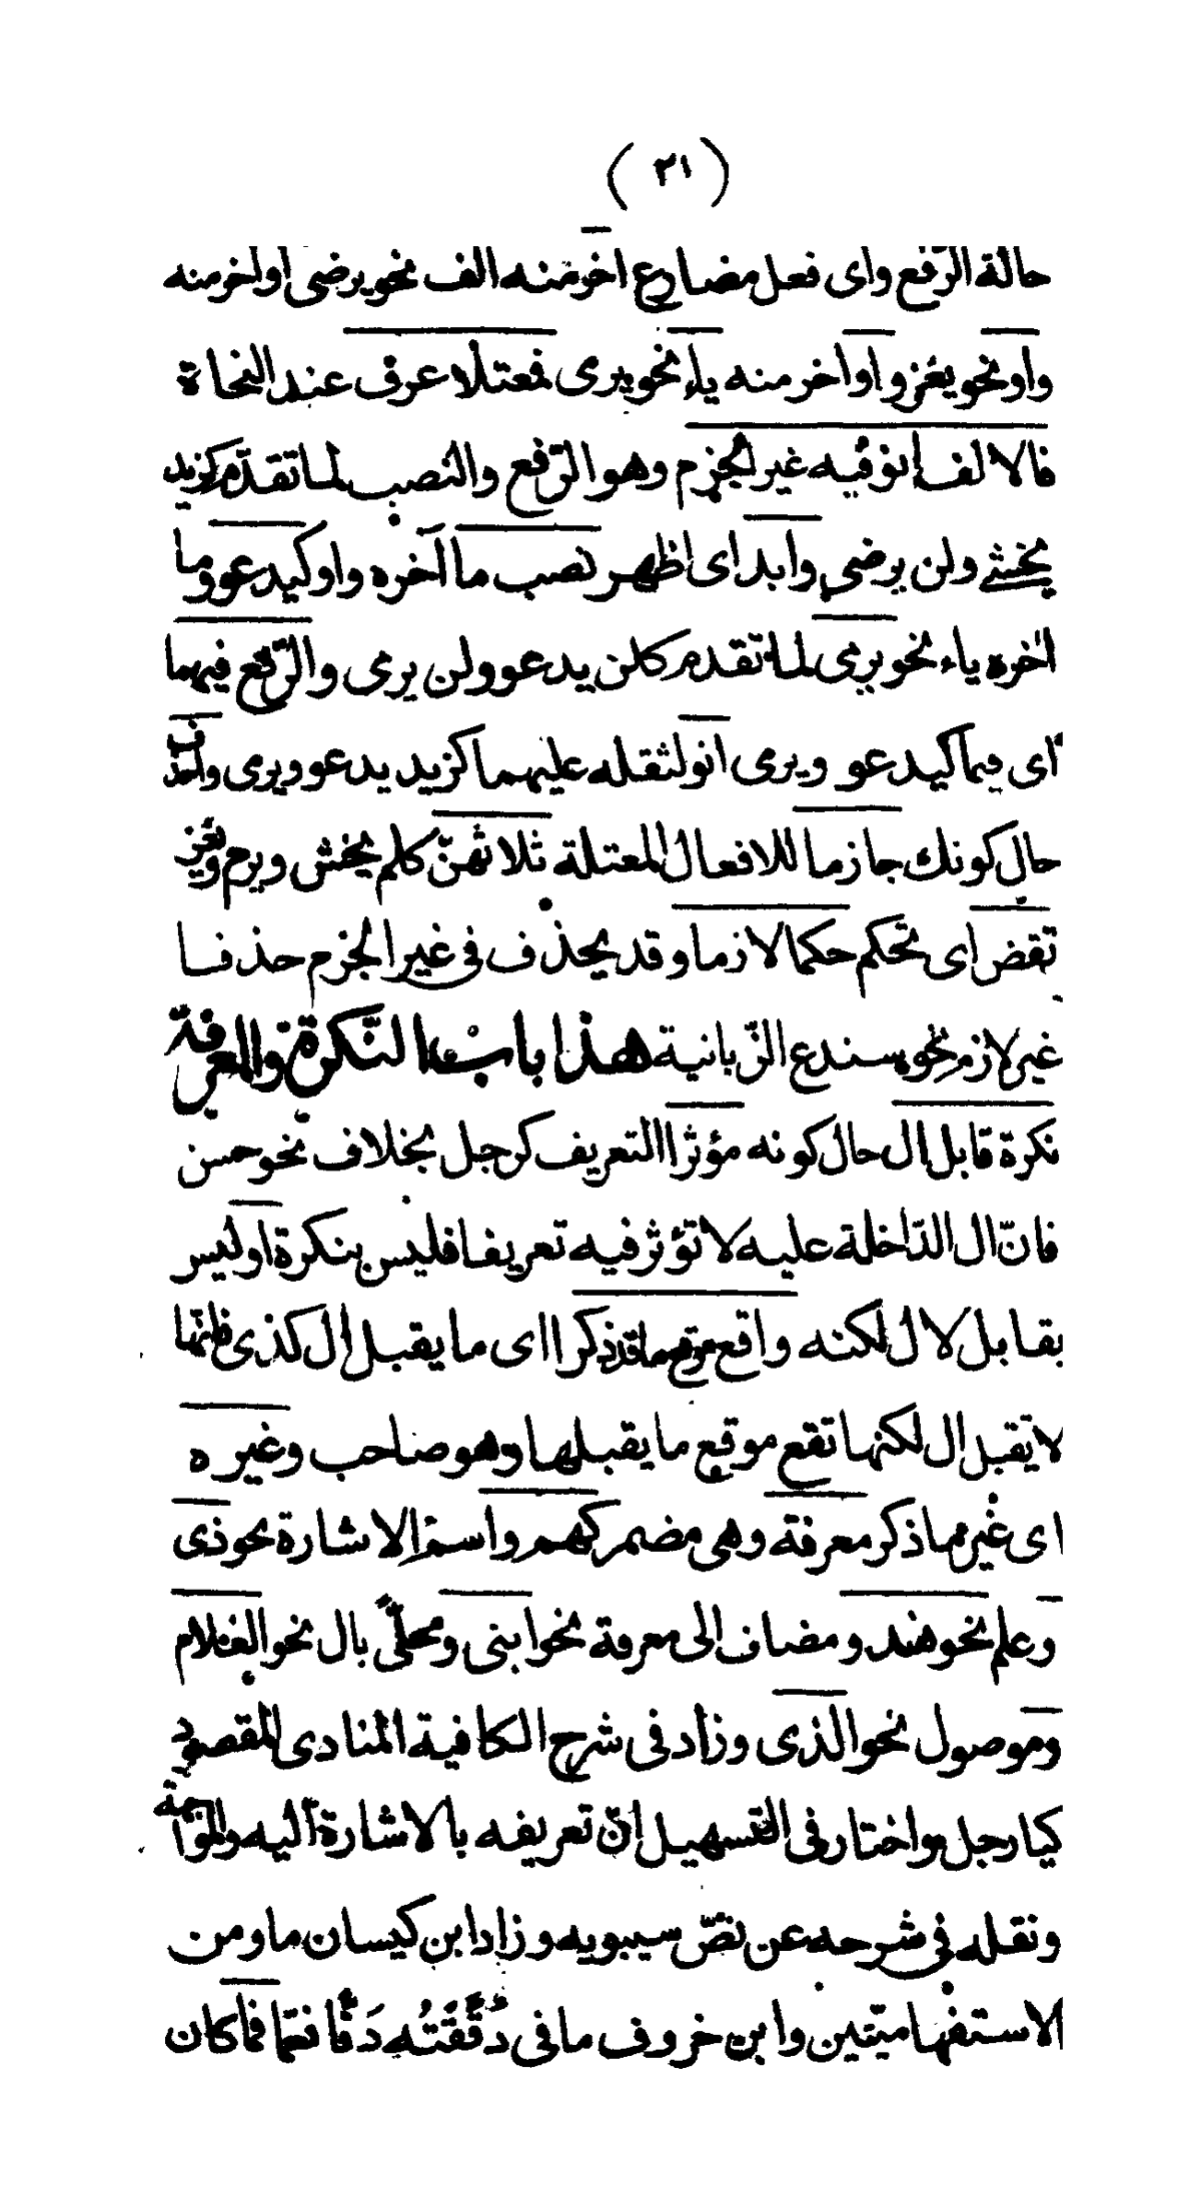 (٢١)
حالة الرّفع واى فعل مضارع اخر منه الف نحو يرضى او اخر منه
واو نحو يغزو او اخر منه ياء نحو يرمى فمعتلا عرف عند النحاة
فالالف انو فيه غير الجزم وهو الرّفع والنصب لما تقدّم كزيد
يخشى ولن يرضى وابد اى اظهر نصب ما آخره واو كيدعو وما
اخره ياء نحو يرمى لما تقدم كلن يدعو ولن يرمى والرّفع فيهما
اى فيما كيدعو ويرمى انو لثقله عليهما كزيد يدعو ويرمى واحذف
حال كونك جازما للافعال المعتلة ثلاثهنّ كلم يخش ويرم ويغز
تقض اى تحكم حكما لازما وقد يحذف فى غير الجزم حذفا
غير لازم نحو سندع الزّبانية هذا باب النّكرة والمعرفة
نكرة قابل ال حال كونه مؤثرا التعريف كرجل بخلاف نحو حسن
فانّ ال الدّاخلة عليه لا تؤثر فيه تعريفا فليس بنكرة او ليس
بقابل لال لكنه واقع موقع ما قد ذكرا اى ما يقبل ال كذى فانّها
لا يقبل ال لكنها تقع موقع ما يقبلها وهو صاحب وغيره
اى غير ما ذكر معرفة وهى مضمر كهم واسم الاشارة نحو ذى
وعلم نحو هند ومضاف الى معرفة نحو ابنى ومحلّى بال نحو الغلام
وموصول نحو الذى وزاد فى شرح الكافية المنادى المقصود
كيا رجل واختار فى التسهيل انّ تعريفه بالاشارة اليه والمواجهة
ونقله فى شرحه عن نصّ سيبويه وزاد ابن كيسان ما ومن
الاستفهاميّتين وابن خروف ما فى دَقَقْتُه دَقًّا نعمّا فما كان